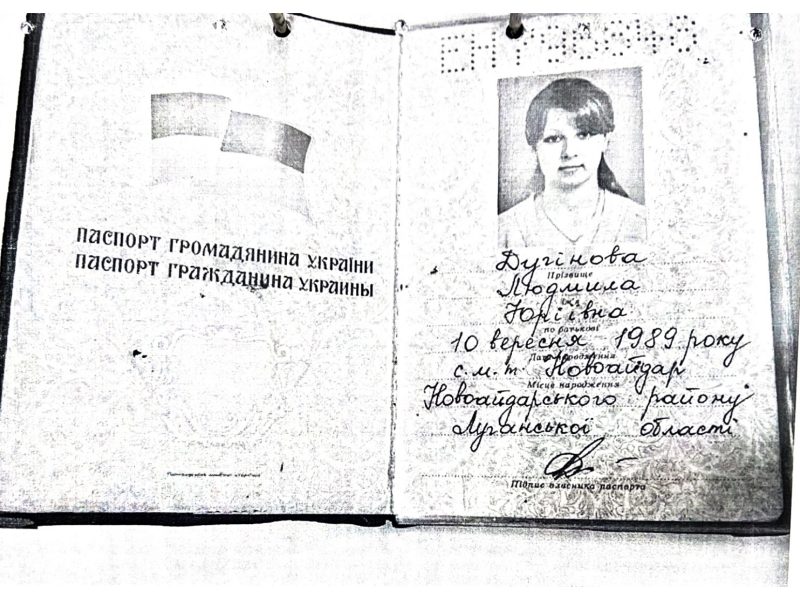 ПАСПОРТ ГРОМАДЯНИНА УКРАЇНИ
ПАСПОРТ ГРАЖДАНИНА УКРАИНЫ
Дугінова
Прізвище
Людмила
Ім'я
Юріївна
по батькові
10 вересня 1989 року
Дата народження
с.м.т. Новоайдар
Місце народження
Новоайдарського району
Луганської області
Підпис власника паспорта